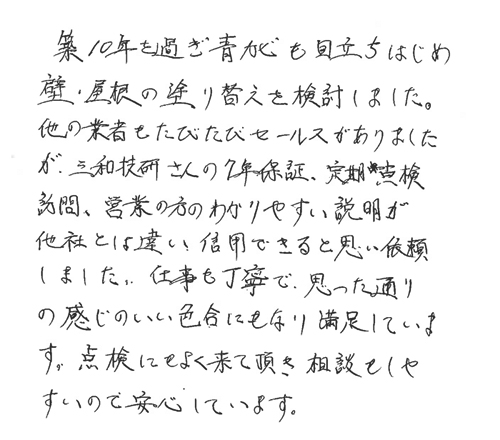 築10年を過ぎ青カビも目立ちはじめ
壁・屋根の塗り替えを検討しました。
他の業者もたびたびセールスがありました
が、三和技研さんの7年保証、定期点検
訪問、営業の方のわかりやすい説明が
他社とは違い信用できると思い依頼
しました。仕事も丁寧で、思った通り
の感じのいい色合にもなり満足していま
す。点検にもよく来て頂き相談もしや
すいので安心しています。